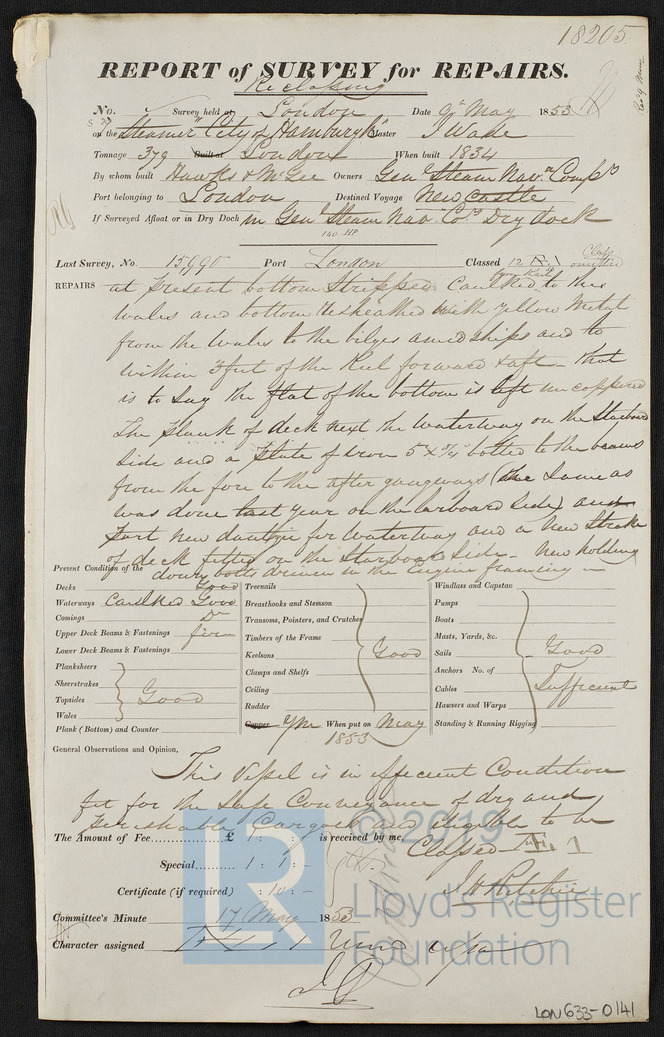 18205
REPORT of SURVEY for REPAIRS.
Reclassing
No. Survey held at London Date 9th May 1853
on the Steamer "City of Hamburgh" Master J Wade
Tonnage 379 Built at London When built 1834
By whom built Hawks & McGee Owners Genl Steam Navn Compy
Port belonging to London Destined Voyage New castle
If Surveyed Afloat or in Dry Dock in Genl Steam Nav. Cos Dry dock
140 HP
Last Survey, No. 15990 Port London Classed 12 Class omitted
REPAIRS at present bottom Stripped Caulked to the
wales and bottom Resheathed with yellow Metal
from the wales to the bilges amidships and to
within 3 feet of the Keel forward & aft - that
is to say the flat of the bottom is left uncoppered
The plank of deck next the waterway on the Starboard
Side and a plate of iron 5 x 3/4 bolted to the beams
from the fore to the after gangways (the same as
was done last year on the larboard side) and
new for waterway and a new Strake
of deck fitted on the Starboard Side - New holding
down bolts driven in the Engine framing -
Present Condition of the
Decks Good
Waterways Caulked Good
Comings Do
Upper Deck Beams & Fastenings firm
Lower Deck Beams & Fastenings
Planksheers
Sheerstrakes
Topsides Good
Wales
Plank (Bottom) and Counter
Treenails
Breasthooks and Stemson
Transoms, Pointers, and Crutches
Timbers of the Frame
Keelsons Good
Clamps and Shelfs
Ceiling
Rudder
Copper YM When put on May
1853
Windlass and Capstan
Pumps
Boats
Masts, Yards, &c.
Sails Good
Anchors No. of
Cables Sufficient
Hawsers and Warps
Standing & Running Rigging
General Observations and Opinion,
This Vessel is in efficient Condition
fit for the safe Conveyance of dry and
perishable Cargoes and eligible to be
Classed Æ 1
The Amount of Fee £ 1 : : is received by me,
Special 1 : 1 : -
Certificate (if required) : 10 : -
J H Ritchie
Committee's Minute 17 May 1853
Character assigned
LR
© 2019
Lloyd's Register
Foundation
LON633-0141